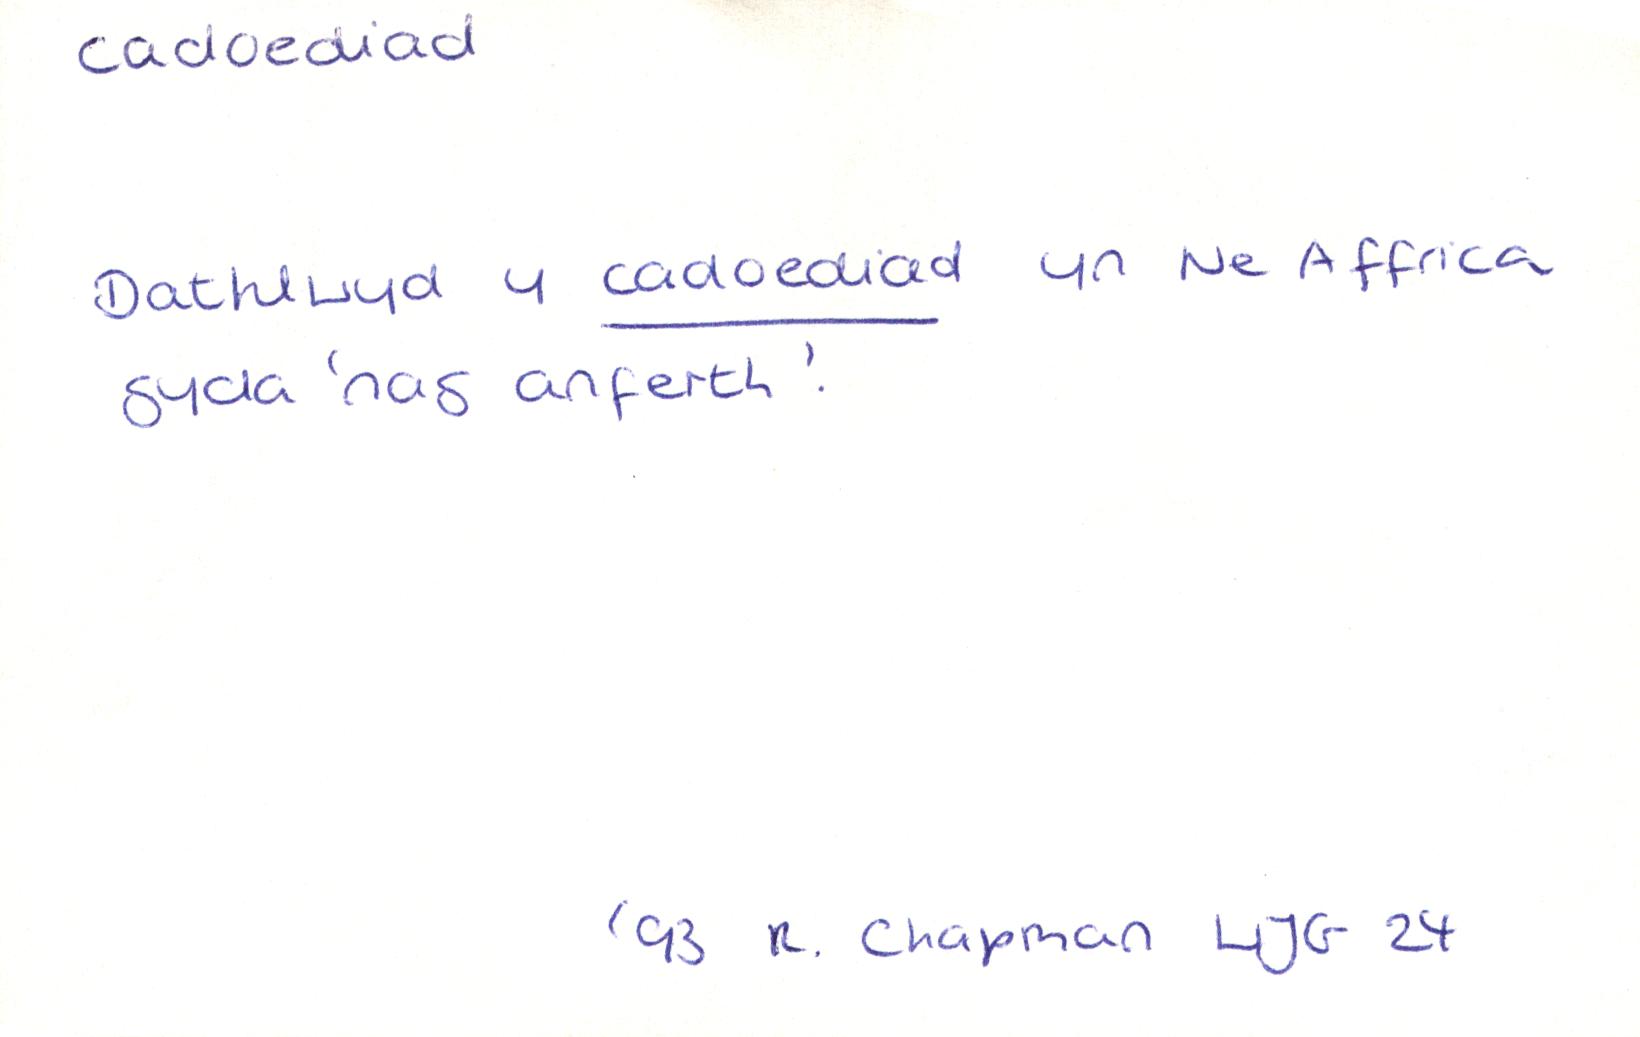 cadoediad
Dathlwyd y cadoediad yn Ne Affrica
gyda 'nag anferth'.
'93 R. Chapman WJG 24